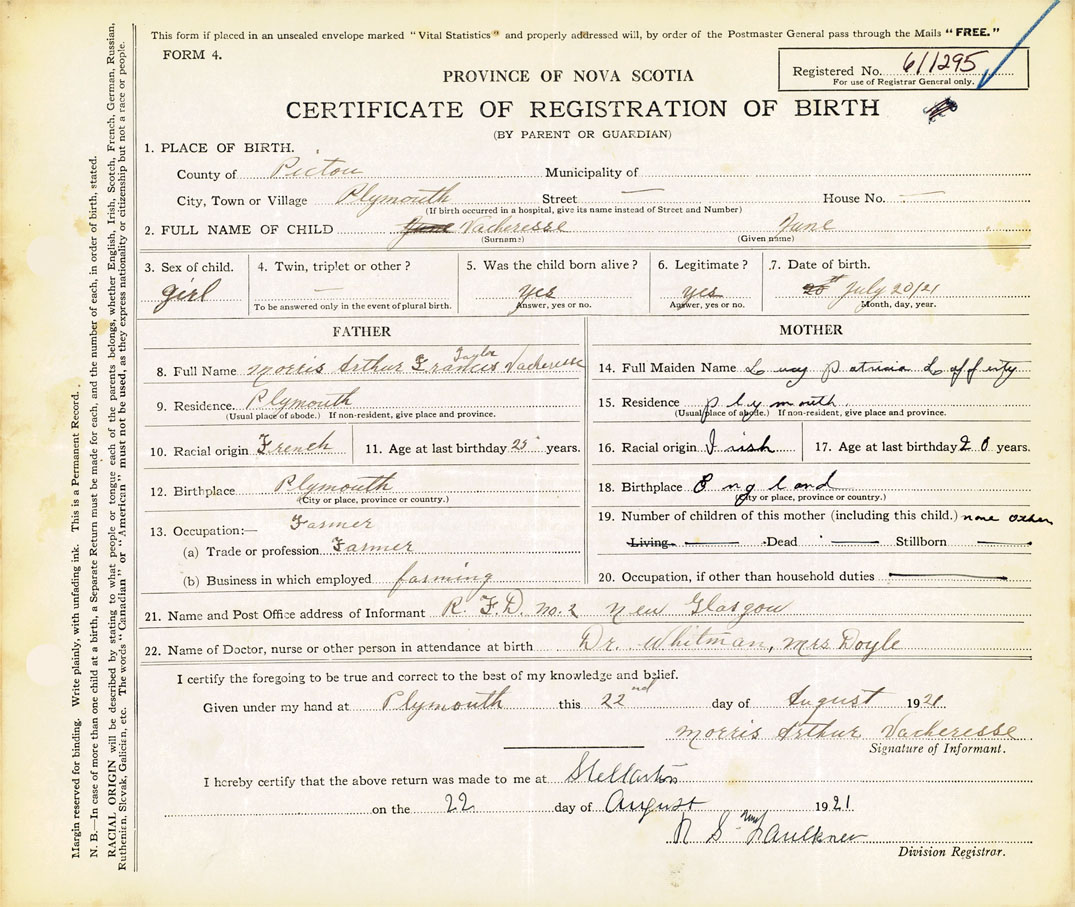 This form if placed in an unsealed envelope marked "Vital Statistics" and properly addressed will, by order of the Postmaster General pass through the Mails "FREE."
FORM 4.
Registered No. 611295
For use of Registrar General only.
PROVINCE OF NOVA SCOTIA
CERTIFICATE OF REGISTRATION OF BIRTH
(BY PARENT OR GUARDIAN)
1. PLACE OF BIRTH.
County of Pictou Municipality of
City, Town or Village Plymouth Street — House No. —
(If birth occurred in a hospital, give its name instead of Street and Number)
2. FULL NAME OF CHILD June Vacheresse June
(Surname) (Given name)
3. Sex of child. 4. Twin, triplet or other? 5. Was the child born alive? 6. Legitimate? 7. Date of birth.
girl — yes yes 20th July 20/21
To be answered only in the event of plural birth. Answer, yes or no. Answer, yes or no. Month, day, year.
FATHER
Taylor
8. Full Name Morris Arthur Francis Vacheresse
9. Residence. Plymouth
(Usual place of abode.) If non-resident, give place and province.
10. Racial origin French 11. Age at last birthday 25 years.
12. Birthplace Plymouth
(City or place, province or country.)
13. Occupation:— Farmer
(a) Trade or profession Farmer
(b) Business in which employed farming
MOTHER
14. Full Maiden Name Lucy Patricia Lafferty
15. Residence plymouth
(Usual place of abode.) If non-resident, give place and province.
16. Racial origin Irish 17. Age at last birthday 20 years.
18. Birthplace England
(City or place, province or country.)
19. Number of children of this mother (including this child.) none other
Living — Dead — Stillborn —
20. Occupation, if other than household duties —
21. Name and Post Office address of Informant R. F. D. no. 2 New Glasgow
22. Name of Doctor, nurse or other person in attendance at birth Dr. Whitman, Mrs Doyle
I certify the foregoing to be true and correct to the best of my knowledge and belief.
Given under my hand at Plymouth this 22nd day of August 1921.
Morris Arthur Vacheresse
Signature of Informant.
I hereby certify that the above return was made to me at Stellarton
on the 22 day of August 1921
Faulkner
Division Registrar.
Margin reserved for binding. Write plainly, with unfading ink. This is a Permanent Record.
N. B.—In case of more than one child at a birth, a Separate Return must be made for each, and the number of each, in order of birth, stated.
RACIAL ORIGIN will be described by stating to what people or tongue each of the parents belongs, whether English, Irish, Scotch, French, German, Russian,
Ruthenian, Slovak, Galician, etc. The words "Canadian" or "American" must not be used, as they express nationality or citizenship but not a race or people.